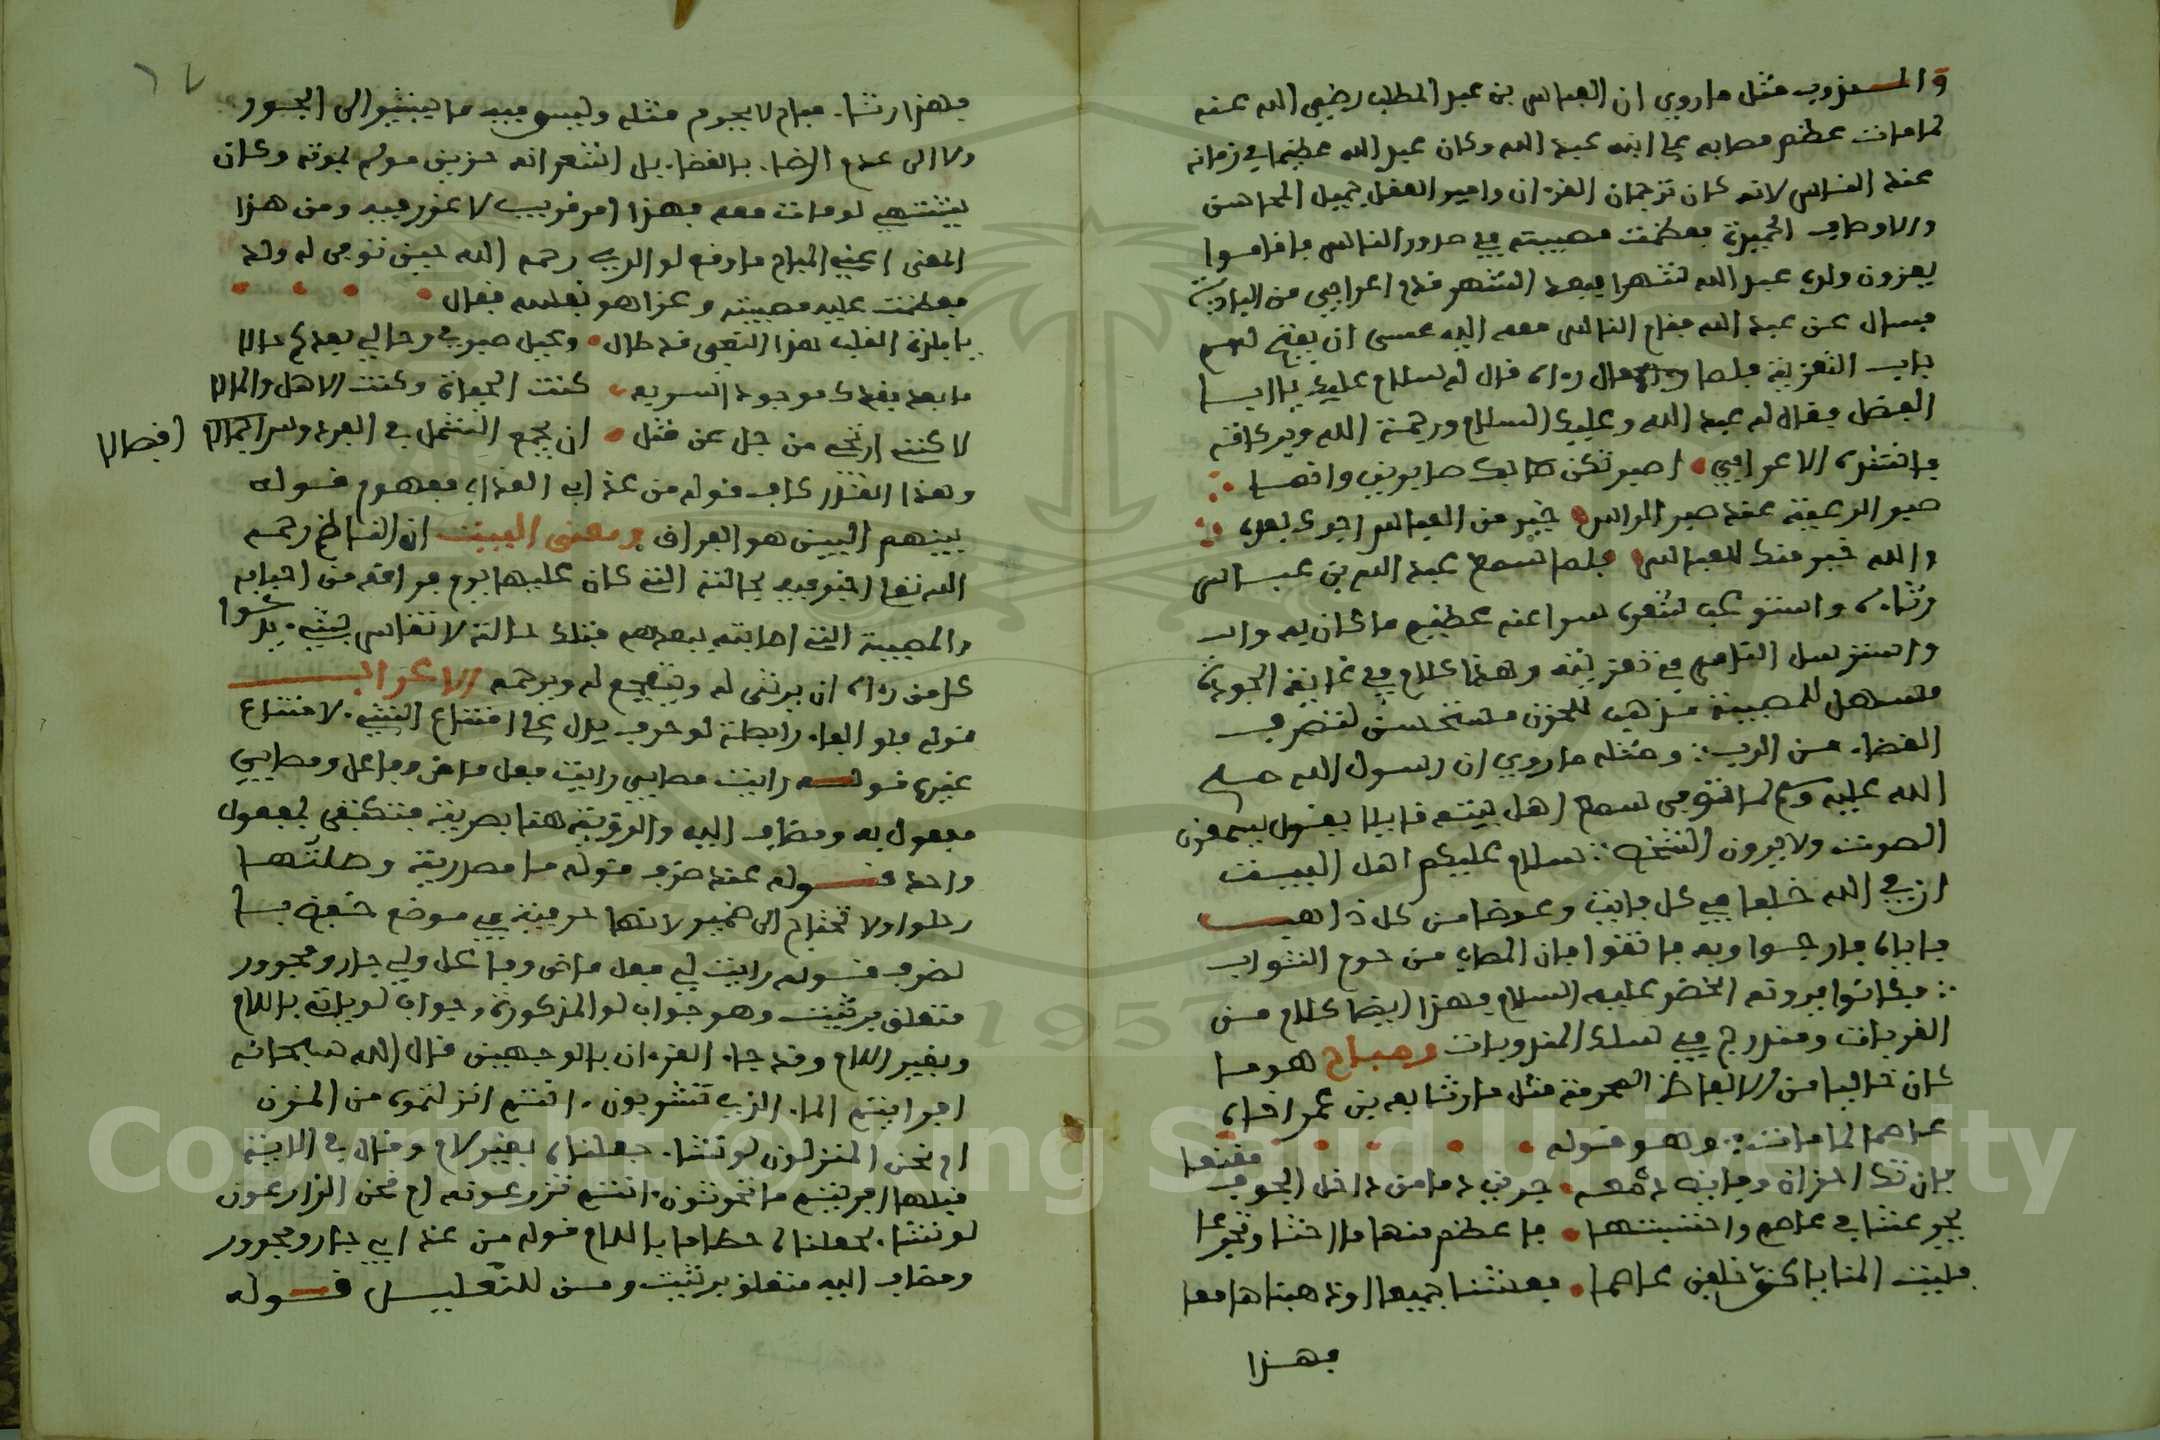 والمندوب مثل ما روي ان العباس بن عبد المطلب رضي الله عنه
لما مات عظم مصابه على ابنه عبد الله وكان عبد الله عظيما في زمانه
عند الناس لانه كان ترجمان القرءان وافر العقل جميل المحاسن
والاوصاف الحميدة فعظمت مصيبته في صدور الناس فاقاموا
يعزون ولده عبد الله شهرا فبعد الشهر قدم اعرابي من البادية
فسال عن عبد الله فقام الناس معه اليه عسى ان يفتح لهم
باب التعزية فلما رءاه قال له سلام عليك يا ابا
الفضل فقال له عبد الله وعليك السلام ورحمة الله وبركاته
فانشده الاعرابي اصبر نكن بك صابرين وانما
صبر الرعية عند صبر الراس خير من العباس اجرك بعده
والله خير منك للعباس فلما سمع عبد الله بن عباس
رثاءه واستوعب شعره سرا عنه عظيم ما كان به واب
واسترسل الناس في تعزيته وهذا كلام في غاية الجودة
مسهل للمصيبة مذهب للحزن مستحسن لتصرف
القضاء من الرب ومثله ما روي ان رسول الله صلى
الله عليه وسلم لما توفي سمع اهل بيته قايلا يقول يسمعون
الصوت ولا يرون الشخص سلام عليكم اهل البيت
ان في الله خلفا من كل فايت وعوضا من كل ذاهب
فاياه فارجوا وبه فاتقوا فان المصاب من حرم الثواب
فكانوا يرونه الخضر عليه السلام فهذا ايضا كلام من
القربات ومندرج في سلك المندوبات ومباح هو ما
كان خاليا من الالفاظ المحرمة مثل ما رثا به بن عمر اخاه
عاصما لما مات وهو قوله
فان تك احزان وفايض دمعة جرين دما من داخل الجوف منقعا
تجرعتها في عاصم واحتسبتها فاعظم منها ما احتسا وتجرعا
فليت المنايا كن خلفن عاصما فعشنا جميعا او ذهبنا معا
فهذا
٦٧
فهذا رثاء مباح لا يحرم مثله وليس فيه ما يشير الى الجور
ولا الى عدم الرضا بالقضاء بل اشعر انه حزين موله لموته وكان
يشتهي لو مات معه فهذا امر قريب لا غرر فيه ومن هذا
المعنى اعني المباح ما وقع لوالدي رحمه الله حين توفي له ولد
فعظمت عليه مصيبته وعزا هو نفسه فقال
يا فلذة القلب هذا النعي قد طال وعيل صبري وحالي بعدكم حالا
ما بعد فقدك موجود اسر به كنت الحياة وكنت الاهل والمالا
لا كنت ارتجي من جل عن مثل ان يجمع الشمل في الفردوس افضالا
وهذا القدر كاف قوله من عذابي العذاب مفهوم قوله
بينهم البين هو الفراق ومعنى البيت ان الناظم رحمه
الله تعالى اخبر فيه بحالته التي كان عليها يوم فراقه من احبابه
والمصيبة التي اصابته ببعدهم فتلك حالة لا تقاس بشيء يدعوا
كل من رءاه ان يرثى له ويتفجع له ويرحمه الاعراب
قوله فلو الفاء رابطة لو حرف يدل على امتناع الشيء لامتناع
غيره قوله رايت مصابي رايت فعل ماض وفاعل ومصابي
مفعول به ومضاف اليه والرؤية هنا بصرية فتكتفي لمفعول
واحد قوله عند ظرف قوله ما مصدرية وصلتها
رحلوا ولا تحتاج الى ضمير لانها حرفية في موضع خفض بـ
الظرف قوله رايت لي فعل ماض وفاعل ولي جار ومجرور
متعلق برثيت وهو جواب لو المذكورة وجواب لو ياتي باللام
وبغير اللام وقد جاء القرءان بالوجهين قال الله سبحانه
افرايتم الماء الذي تشربون ءانتم انزلتموه من المزن
ام نحن المنزلون لو نشاء جعلناه بغير لام وقال في الاية
قبلها افرايتم ما تحرثون ءانتم تزرعونه ام نحن الزارعون
لو نشاء لجعلناه حطاما باللام قوله من عذابي جار ومجرور
ومضاف اليه متعلق برثيت ومن للتعليل قوله